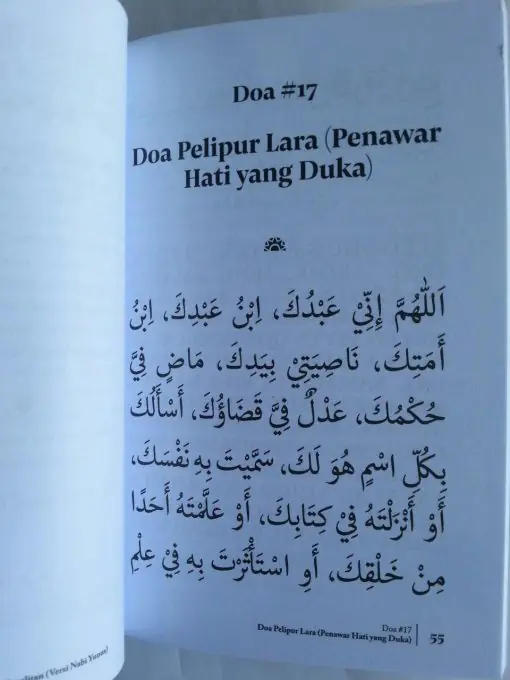 Doa #17
Doa Pelipur Lara (Penawar
Hati yang Duka)
اَللّٰهُمَّ إِنِّيْ عَبْدُكَ، اِبْنُ عَبْدِكَ، اِبْنُ
أَمَتِكَ، نَاصِيَتِيْ بِيَدِكَ، مَاضٍ فِيَّ
حُكْمُكَ، عَدْلٌ فِيَّ قَضَاؤُكَ، أَسْأَلُكَ
بِكُلِّ اسْمٍ هُوَ لَكَ، سَمَّيْتَ بِهِ نَفْسَكَ،
أَوْ أَنْزَلْتَهُ فِيْ كِتَابِكَ، أَوْ عَلَّمْتَهُ أَحَدًا
مِنْ خَلْقِكَ، أَوِ اسْتَأْثَرْتَ بِهِ فِيْ عِلْمِ
Doa #17
Doa Pelipur Lara (Penawar Hati yang Duka) | 55
(Versi Nabi Yunus)